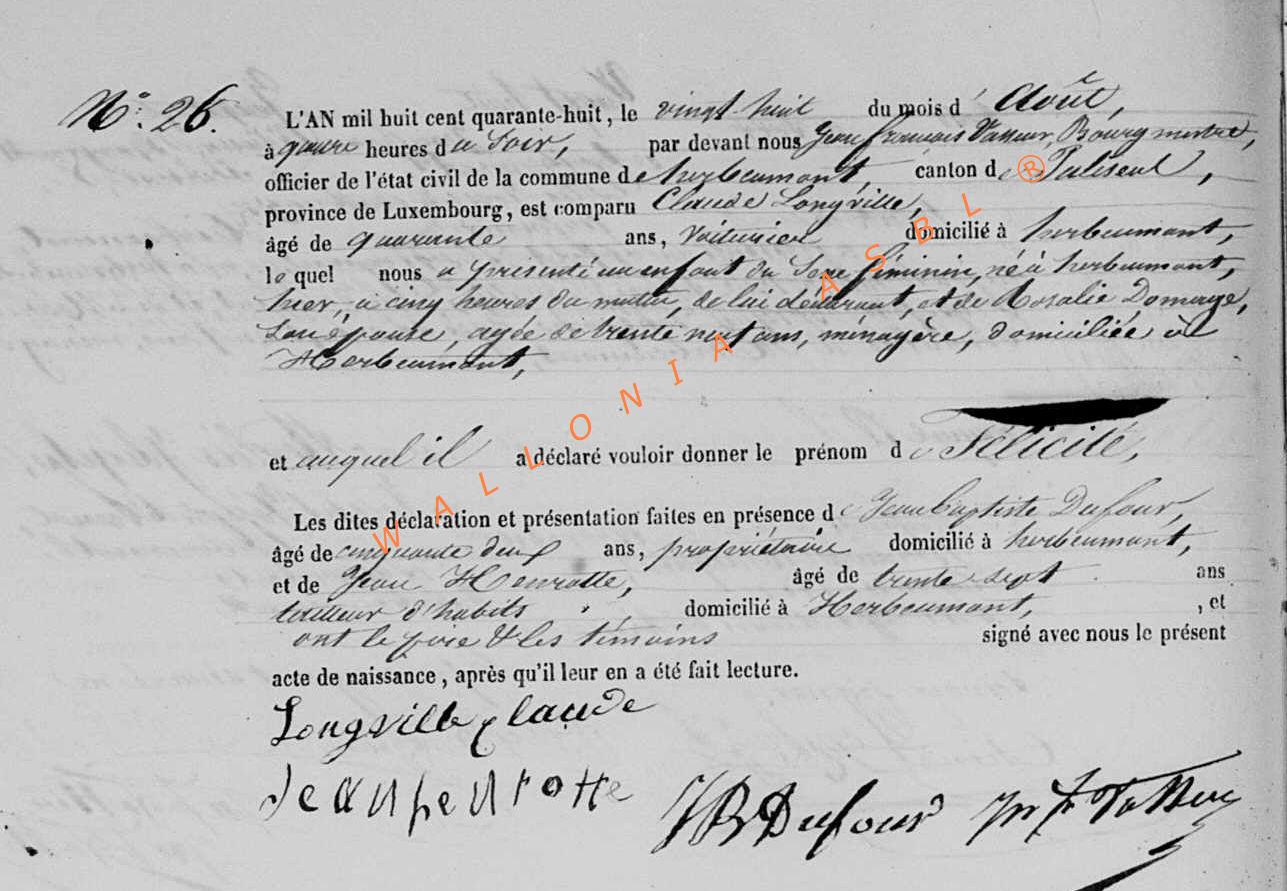 N.° 26.
L'AN mil huit cent quarante-huit, le vingt huit du mois d'Août,
à quatre heures du Soir, par devant nous Jean francois Tasseur, Bourgmestre,
officier de l'état civil de la commune de herbeumont, canton de Paliseul,
province de Luxembourg, est comparu Claude Longville,
âgé de quarante ans, voiturier domicilié à herbeumont,
lequel nous a présenté un enfant du Sexe féminin, né à herbeumont,
hier, à cinq heures du matin, de lui déclarant, et de Rosalie Domage,
Son épouse, agée de trente neuf ans, ménagère, domiciliée à
Herbeumont,
et auquel il a déclaré vouloir donner le prénom de Félicité,
Les dites déclaration et présentation faites en présence de Jean Baptiste Dufour,
âgé de cinquante deux ans, propriétaire domicilié à herbeumont,
et de Jean Henrotte, âgé de trente-sept ans
tailleur d'habits domicilié à Herbeumont, , et
ont le père & les témoins signé avec nous le présent
acte de naissance, après qu'il leur en a été fait lecture.
Longville Claude
Jean henrotte
JB Dufour
WALLONIA ASBL ®